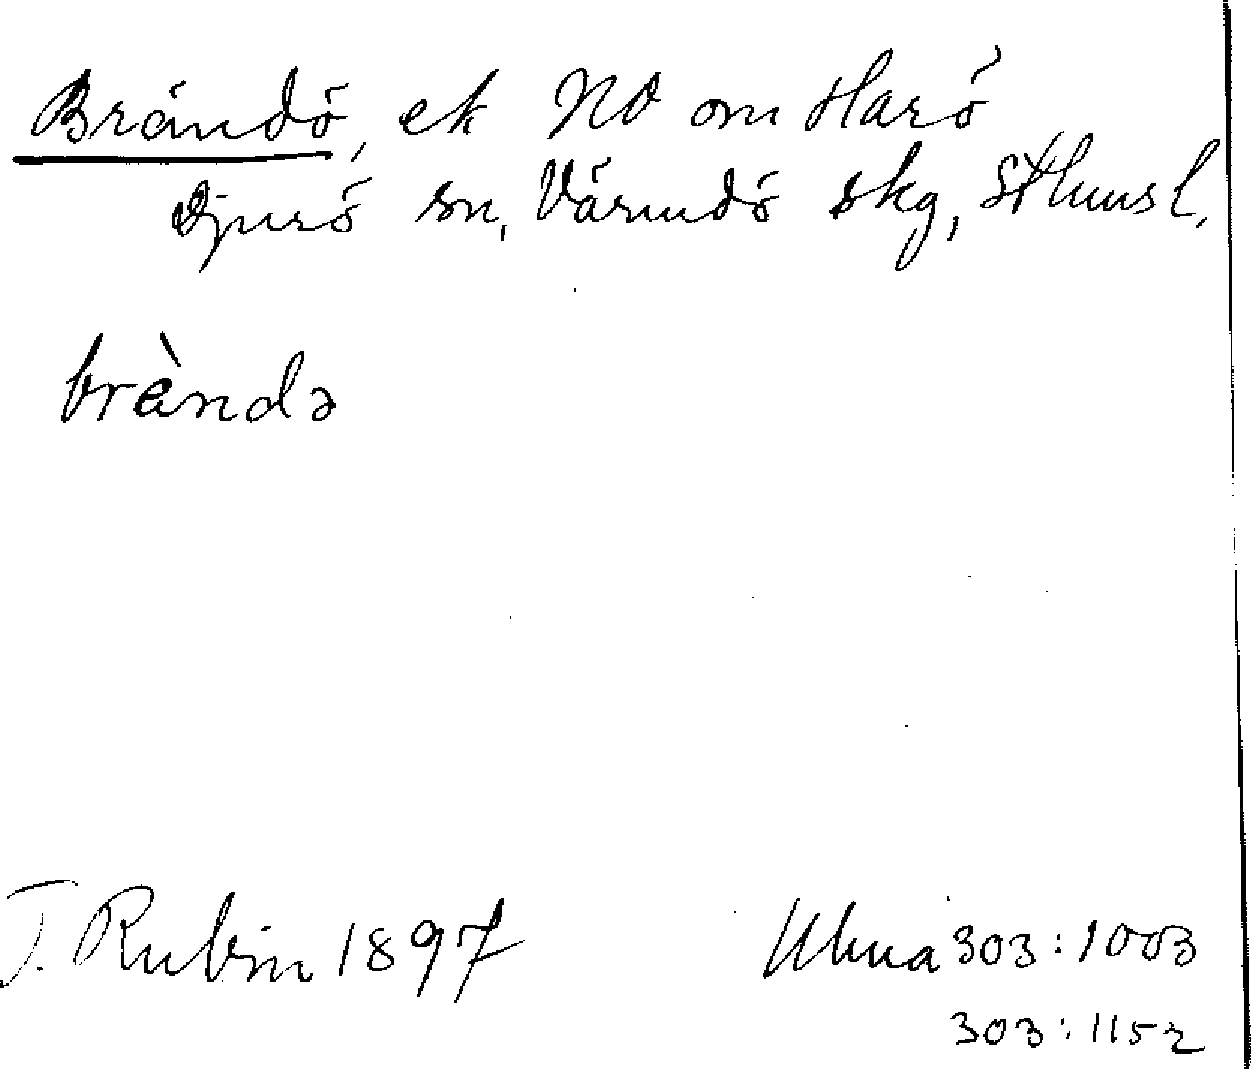 Brändö, ek NO om Harö
Djurö sn, Värmdö skg, Sthmsl.
bràndə
J. Rubin 1897
Ulma 303:1003
303:1152